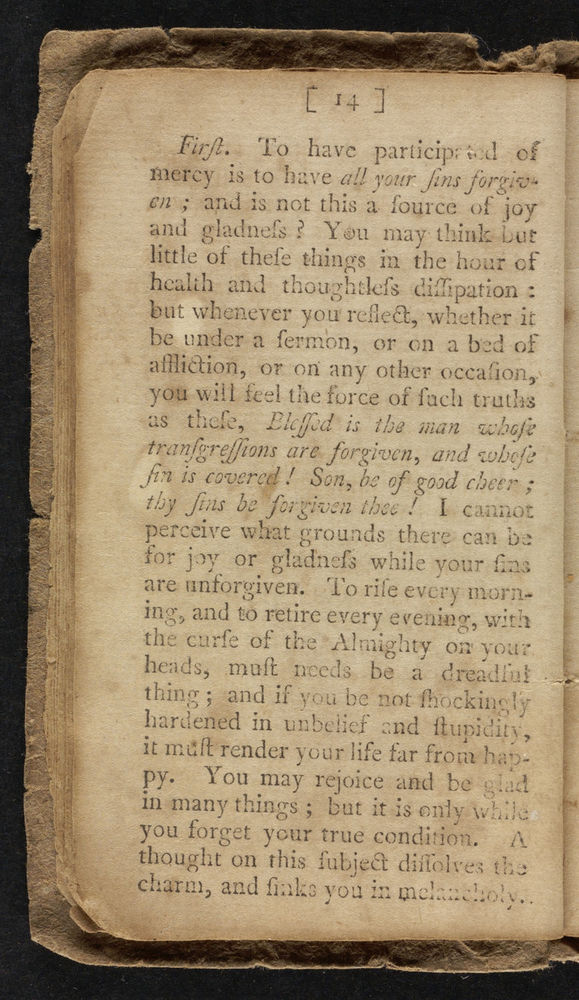 [ 14 ]
Firſt. To have participated of
mercy is to have all your ſins forgiv-
en ; and is not this a ſource of joy
and gladneſs ? You may think but
little of theſe things in the hour of
health and thoughtleſs diſſipation :
but whenever you reflect, whether it
be under a ſermon, or on a bed of
affliction, or on any other occaſion,
you will feel the force of ſuch truths
as theſe, Bleſſed is the man whoſe
tranſgreſſions are forgiven, and whoſe
ſin is covered ! Son, be of good cheer ;
thy ſins be forgiven thee ! I cannot
perceive what grounds there can be
for joy or gladneſs while your ſins
are unforgiven. To riſe every morn-
ing, and to retire every evening, with
the curſe of the Almighty on your
heads, muſt needs be a dreadful
thing ; and if you be not ſhockingly
hardened in unbelief and ſtupidity,
it muſt render your life far from hap-
py. You may rejoice and be glad
in many things ; but it is only while
you forget your true condition. A
thought on this ſubject diſſolves the
charm, and ſinks you in melancholy.